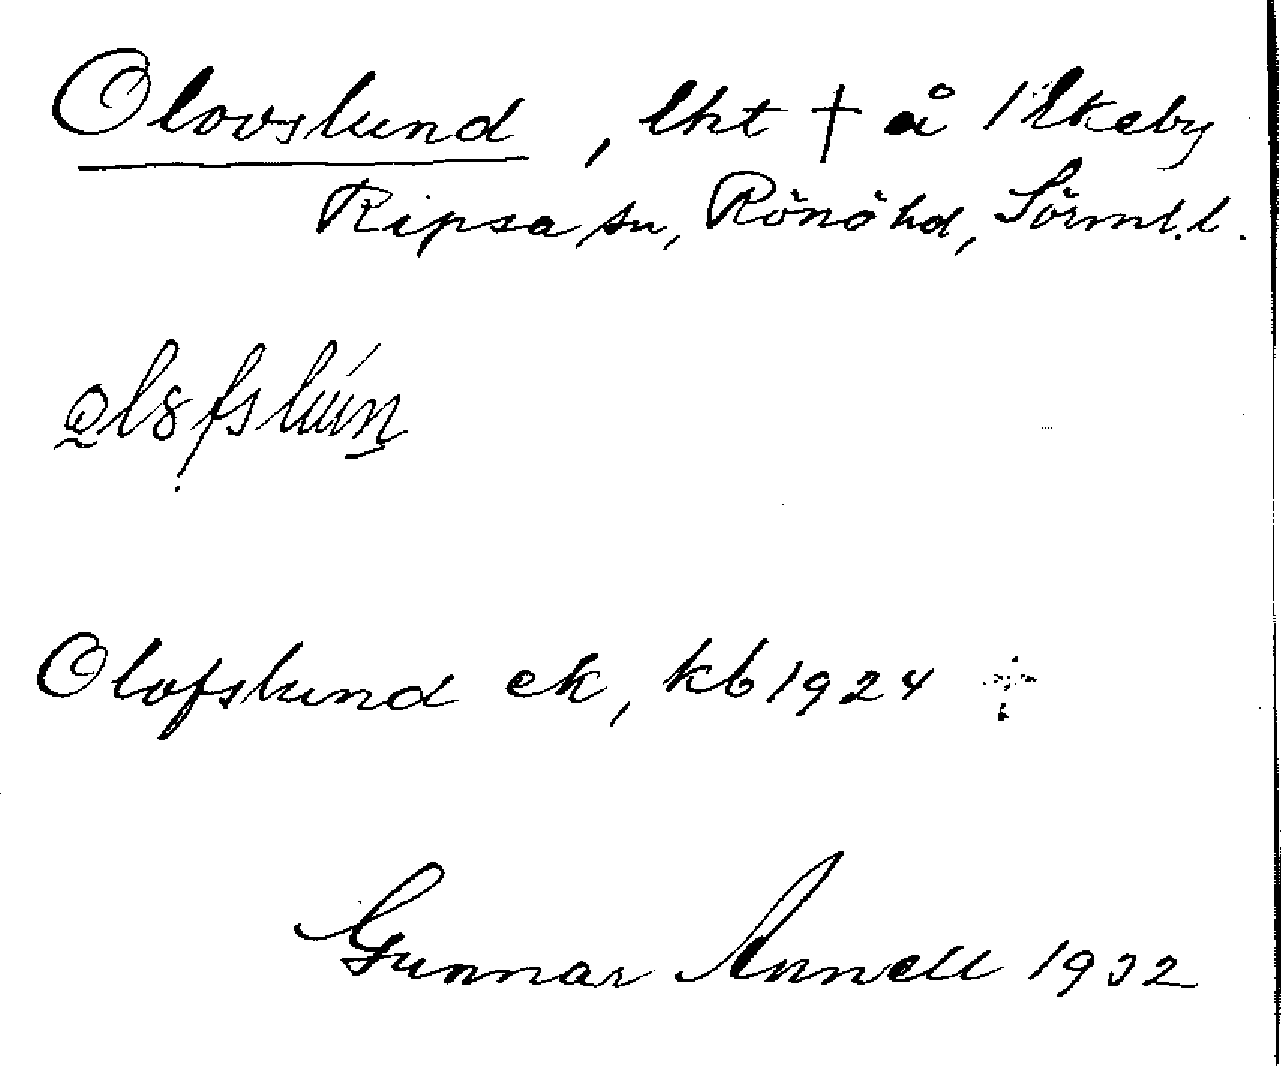 Olovslund, lht † å 1 Ekeby
Ripsa sn, Rönö hd, Sörml. l.
Olofslund ek, kb 1924
Gunnar Annell 1932